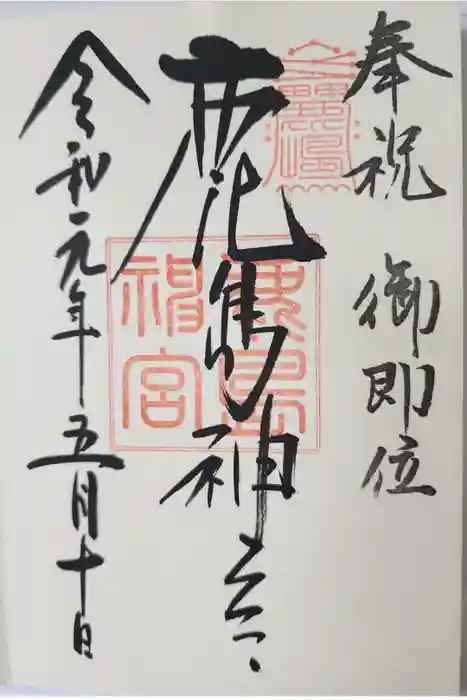 奉祝 御即位
鹿島神宮
鹿島神宮
令和元年五月十日